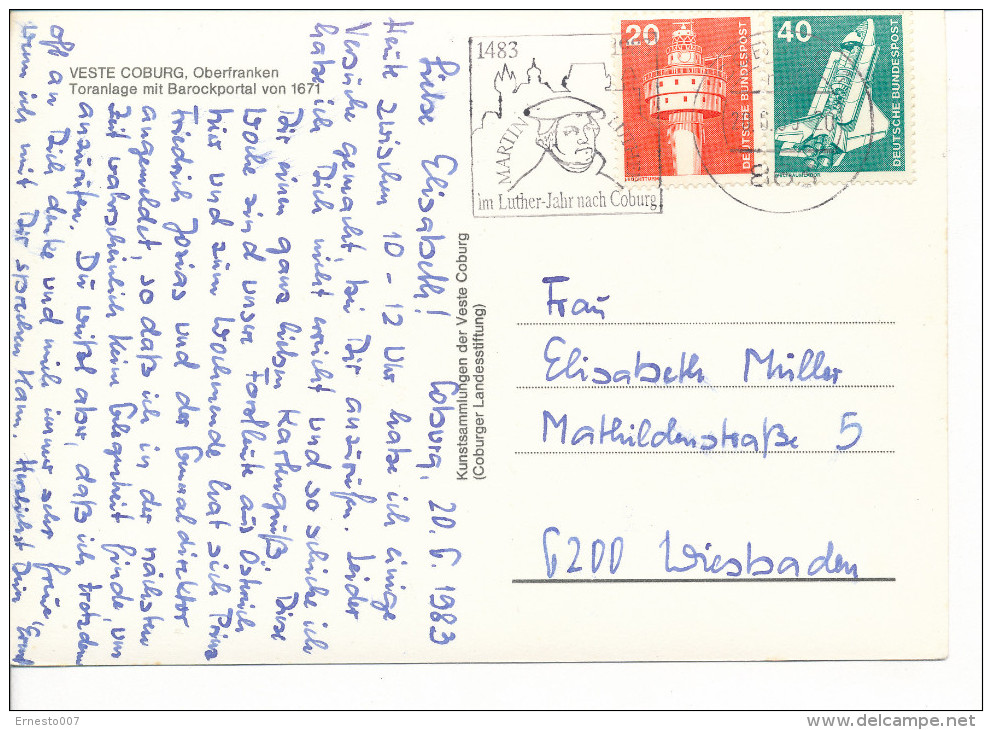 VESTE COBURG, Oberfranken
Toranlage mit Barockportal von 1671
Kunstsammlungen der Veste Coburg
(Coburger Landesstiftung)
Coburg, 20. 6. 1983
Liebe Elisabeth!
Heute zwischen 10 - 12 Uhr habe ich einige
Versuche gemacht, bei Dir anzurufen. Leider
habe ich Dich nicht erreicht und so schicke ich
Dir einen ganz lieben Kartengruß. Diese
Woche sind unsere Forstleute aus Östreich
hier und zum Wochenende hat sich Prinz
Friedrich Josias und der Generaldirektor
angemeldet, so daß ich in der nächsten
Zeit wahrscheinlich keine Gelegenheit finde, um
anzurufen. Du weißt aber, daß ich trotzdem
oft an Dich denke und mich immer sehr freue,
wenn ich mit Dir sprechen kann. Herzlichst Dein Ernst
1483
MARTIN
im Luther-Jahr nach Coburg
20
DEUTSCHE BUNDESPOST
LEUCHTTURM
40
DEUTSCHE BUNDESPOST
Frau
Elisabeth Müller
Mathildenstraße 5
6200 Wiesbaden
Ernesto007
delcampe.net